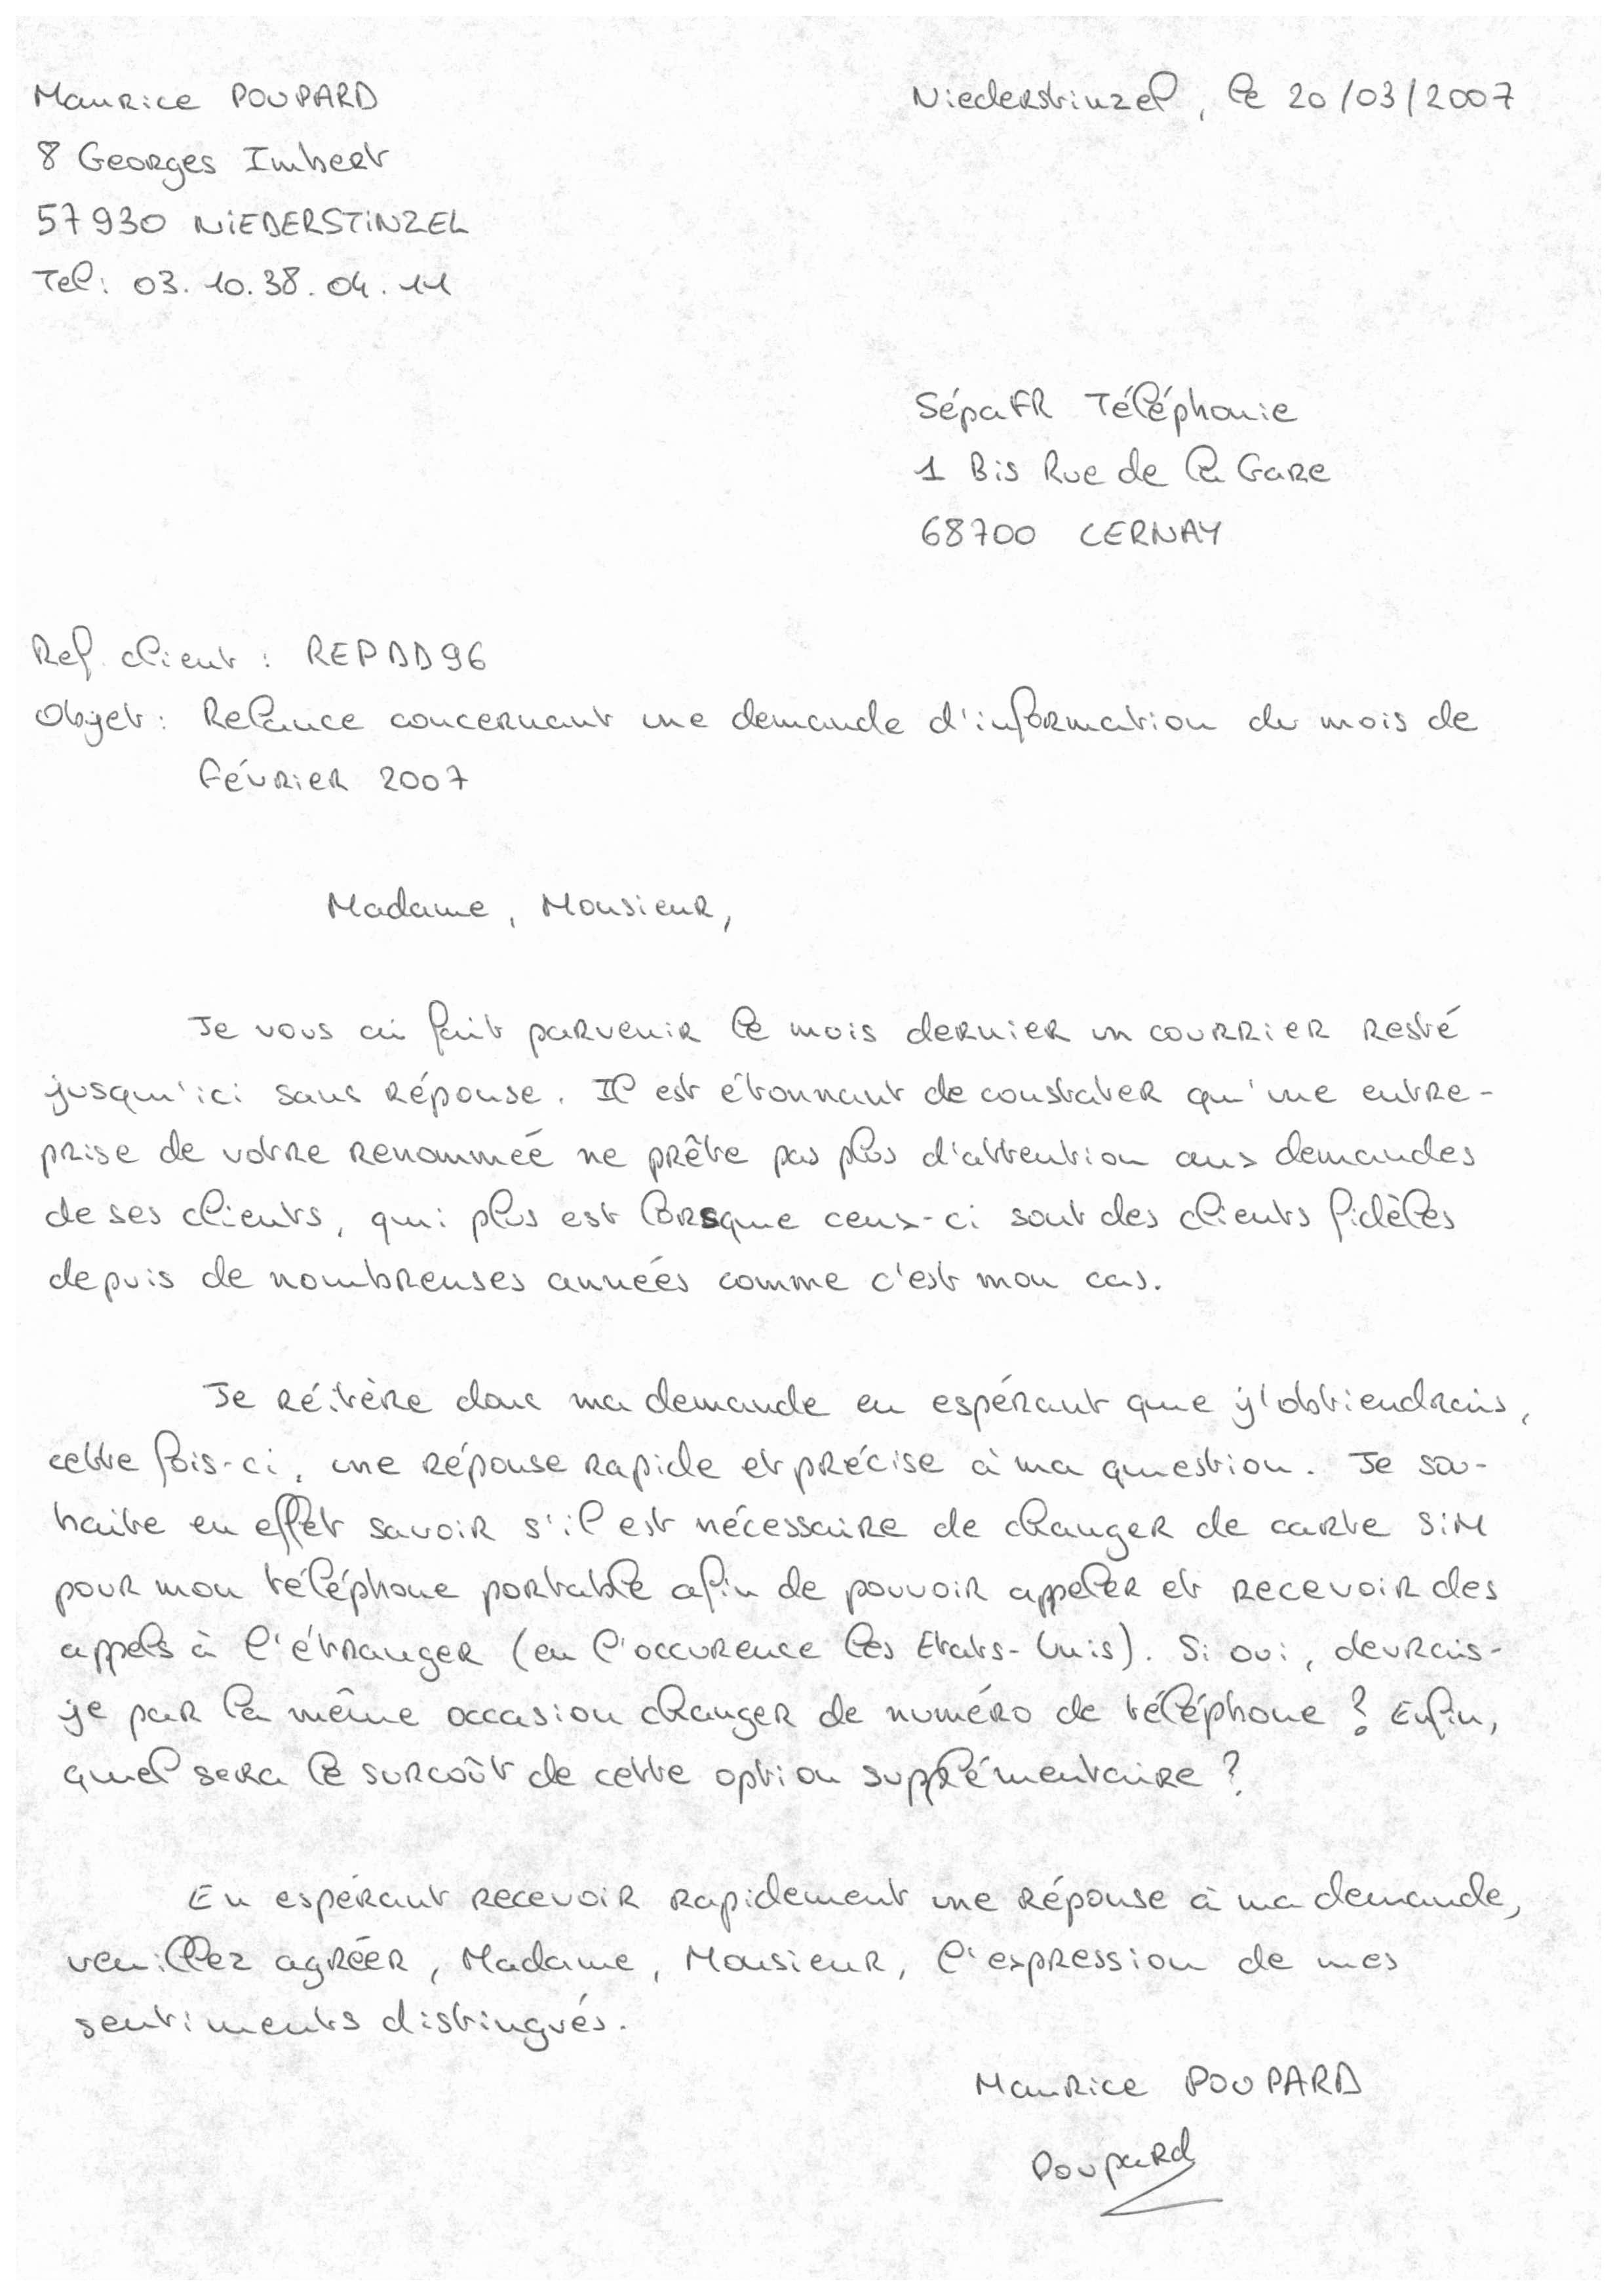 Maurice POUPARD
Niederstinzel, le 20/03/2007
8 Georges Imbert
57930 NIEDERSTINZEL
Tel: 03.10.38.04.11
SépaFR Téléphonie
1 Bis Rue de la Gare
68700 CERNAY
Ref. client : REPDD96
Objet : Relance concernant une demande d'information du mois de
février 2007
Madame, Monsieur,
Je vous ai fait parvenir le mois dernier un courrier resté
jusqu'ici sans réponse. Il est étonnant de constater qu'une entre-
prise de votre renommée ne prête pas plus d'attention aux demandes
de ses clients, qui plus est lorsque ceux-ci sont des clients fidèles
depuis de nombreuses années comme c'est mon cas.
Je réitère donc ma demande en espérant que j'obtiendrais,
cette fois-ci, une réponse rapide et précise à ma question. Je sou-
haite en effet savoir s'il est nécessaire de changer de carte SIM
pour mon téléphone portable afin de pouvoir appeler et recevoir des
appels à l'étranger (en l'occurence les Etats-Unis). Si oui, devrais-
je par la même occasion changer de numéro de téléphone ? Enfin,
quel sera le surcoût de cette option supplémentaire ?
En espérant recevoir rapidement une réponse à ma demande,
veuillez agréer, Madame, Monsieur, l'expression de mes
sentiments distingués.
Maurice POUPARD
Poupard